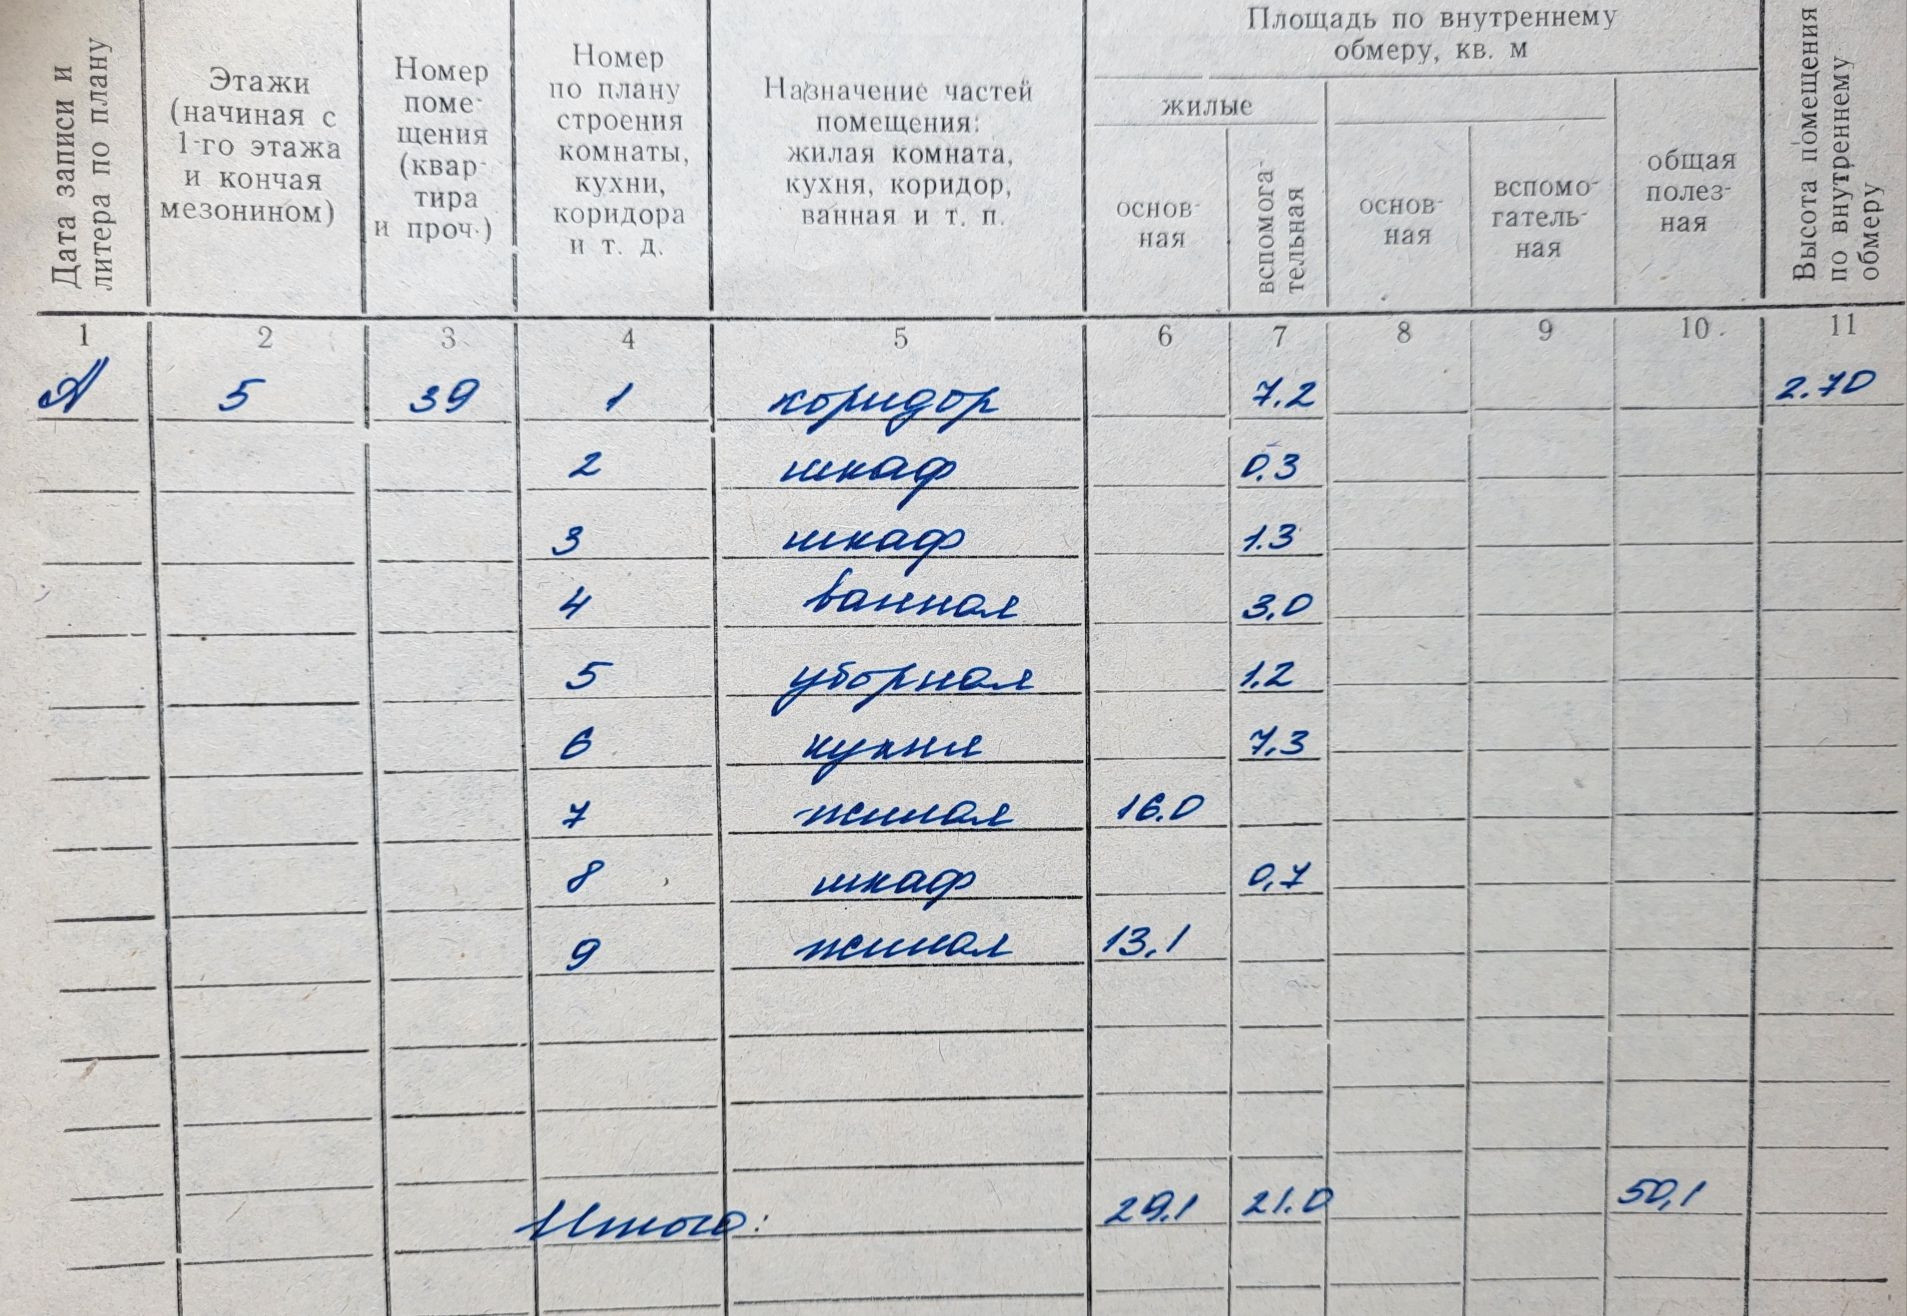 Дата записи и
литера по плану
Этажи
(начиная с
1-го этажа
и кончая
мезонином)
Номер
поме-
щения
(квар-
тира
и проч.)
Номер
по плану
строения
комнаты,
кухни,
коридора
и т. д.
Назначение частей
помещения:
жилая комната,
кухня, коридор,
ванная и т. п.
Площадь по внутреннему
обмеру, кв. м
жилые
основ-
ная
вспомога-
тельная
основ-
ная
вспомо-
гатель-
ная
общая
полез-
ная
Высота помещения
по внутреннему
обмеру
1 2 3 4 5 6 7 8 9 10 11
А 5 39 1 коридор 7.2 2.70
2 шкаф 0.3
3 шкаф 1.3
4 ванная 3,0
5 уборная 1.2
6 кухня 7,3
7 жилая 16.0
8 шкаф 0,7
9 жилая 13,1
Итого: 29.1 21.0 50,1